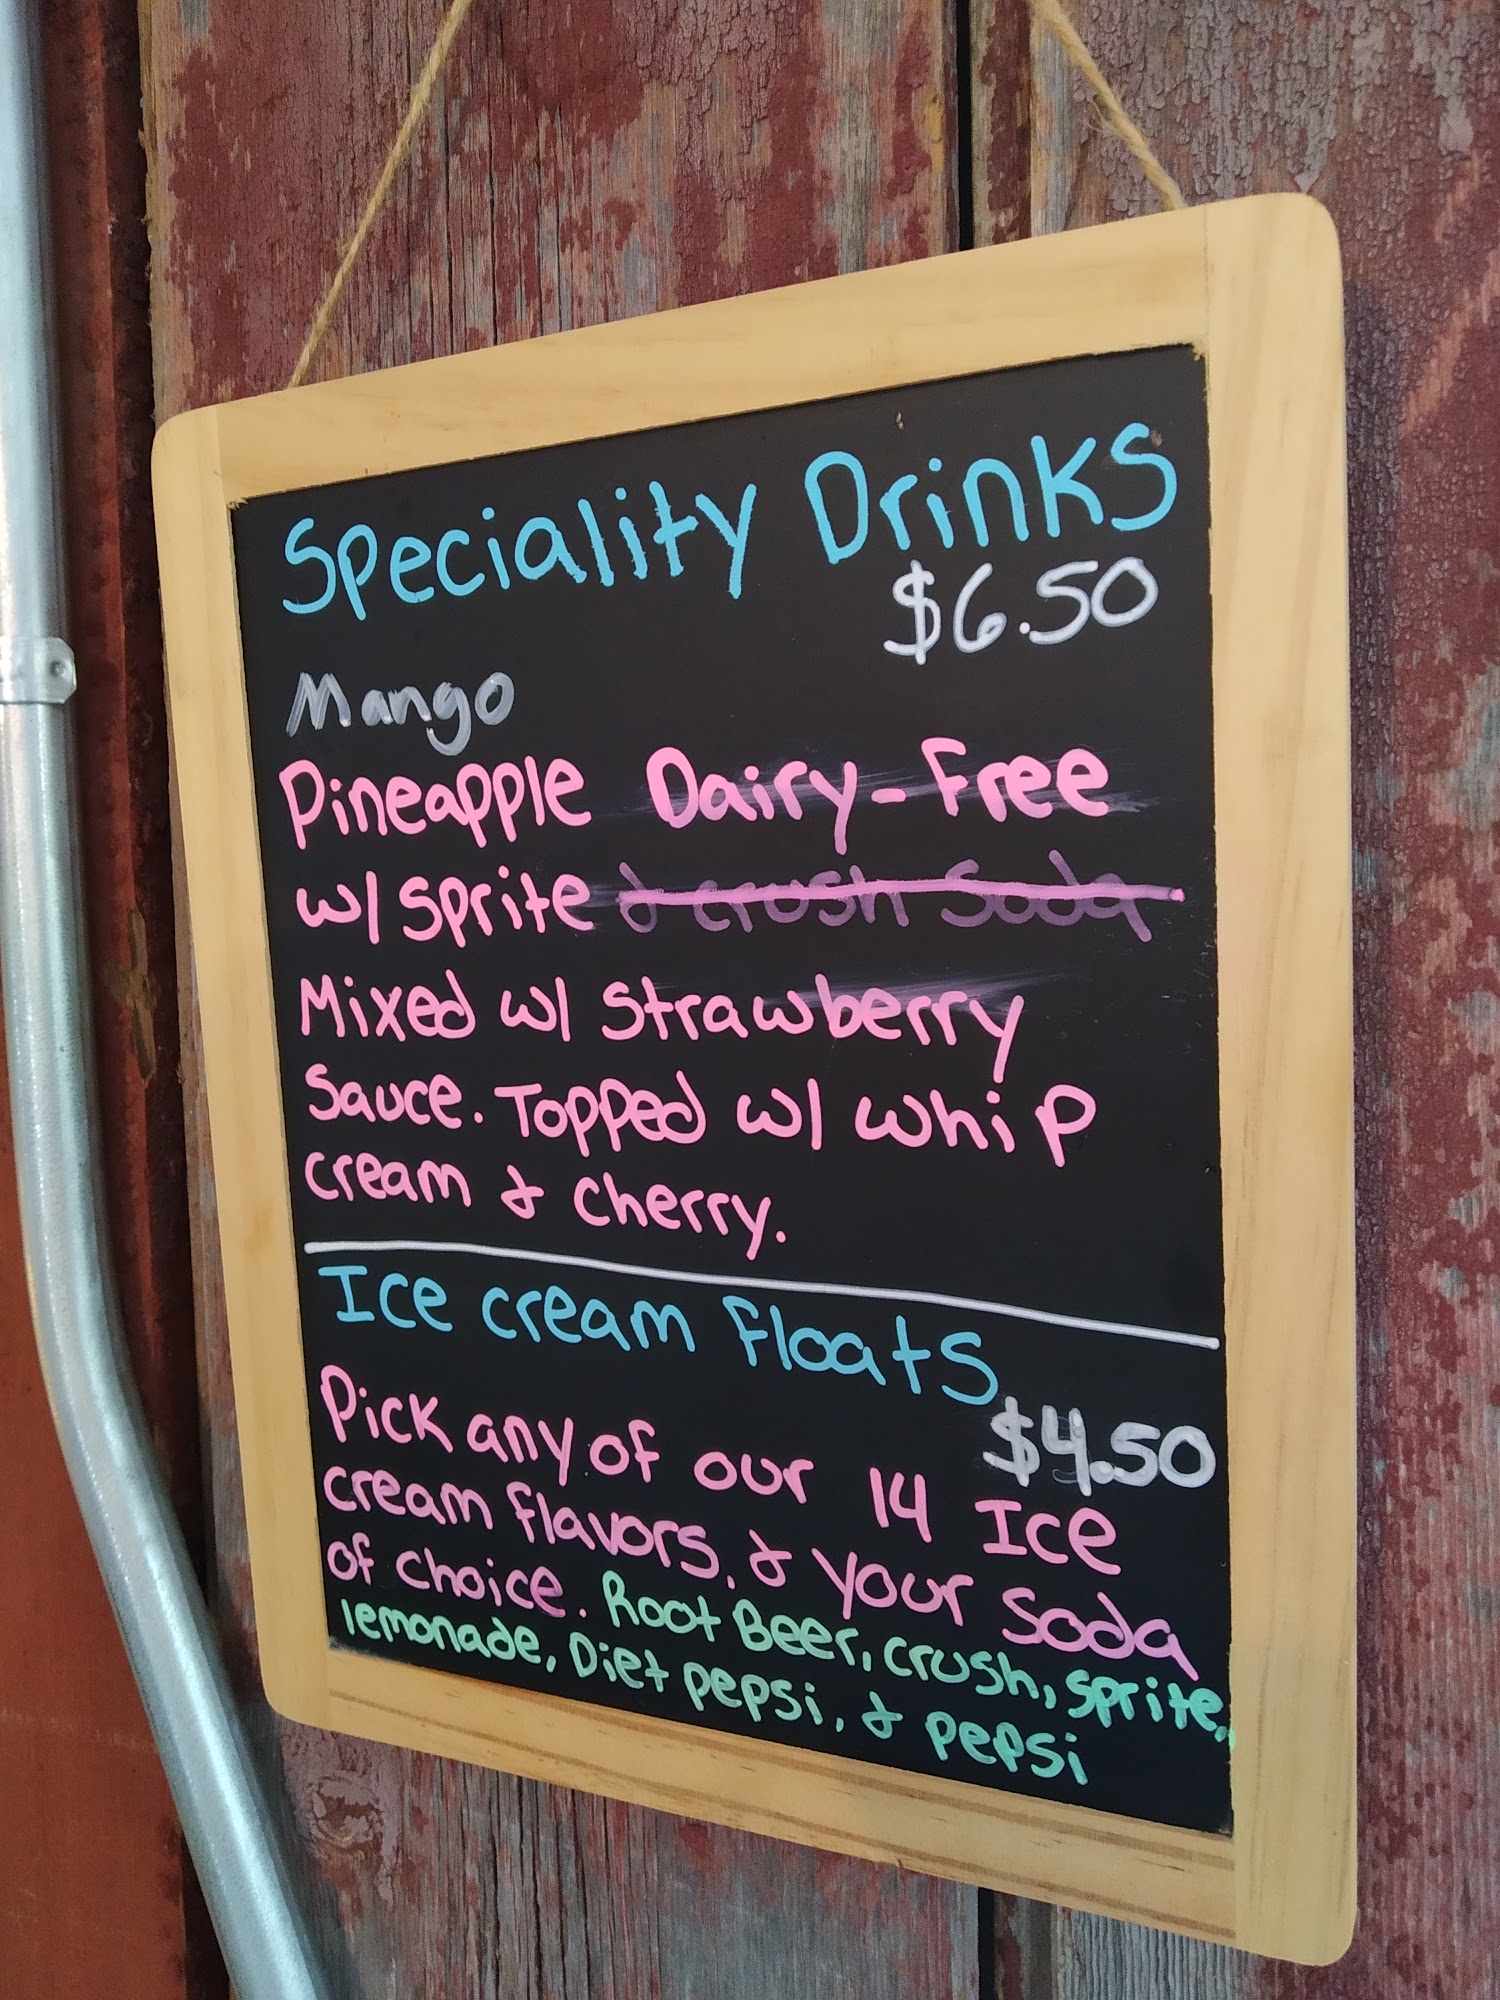 Speciality Drinks
$6.50
Mango
Pineapple Dairy-Free
w/ Sprite & crush Soda
Mixed w/ Strawberry
Sauce. Topped w/ whip
cream & cherry.
Ice cream floats
$4.50
Pick any of our 14 Ice
cream flavors, & your Soda
of choice. Root Beer, crush, sprite,
lemonade, Diet pepsi, & pepsi